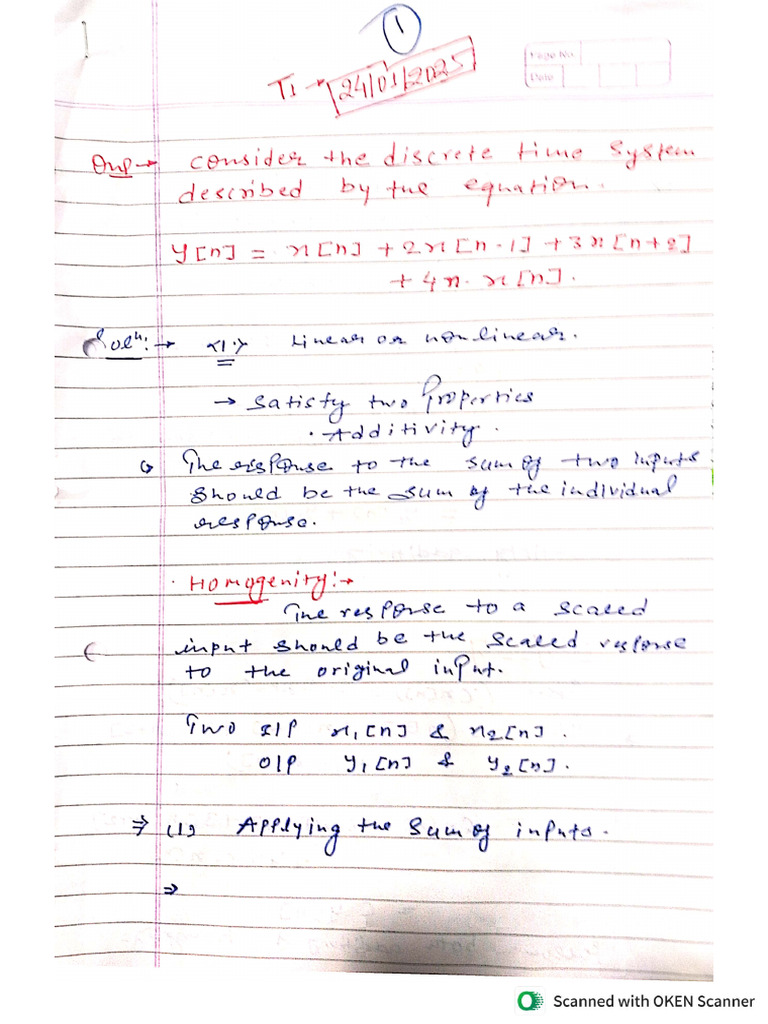 1
T1 → 24/01/2025
Page No.
Date
Qnp → consider the discrete time system
described by the equation.
y[n] = x[n] + 2x[n-1] + 3x[n+2]
+ 4n. x[n].
Solⁿ:→ <1.> Linear or non linear.
→ Satisfy two Properties
· Additivity.
The response to the sum of two inputs
should be the sum of the individual
response.
· Homogenity:→
The response to a scaled
input should be the scaled response
to the original input.
Two I/P x₁[n] & x₂[n].
O/P y₁[n] & y₂[n].
⇒ (1) Applying the sum of inputs.
⇒
Scanned with OKEN Scanner